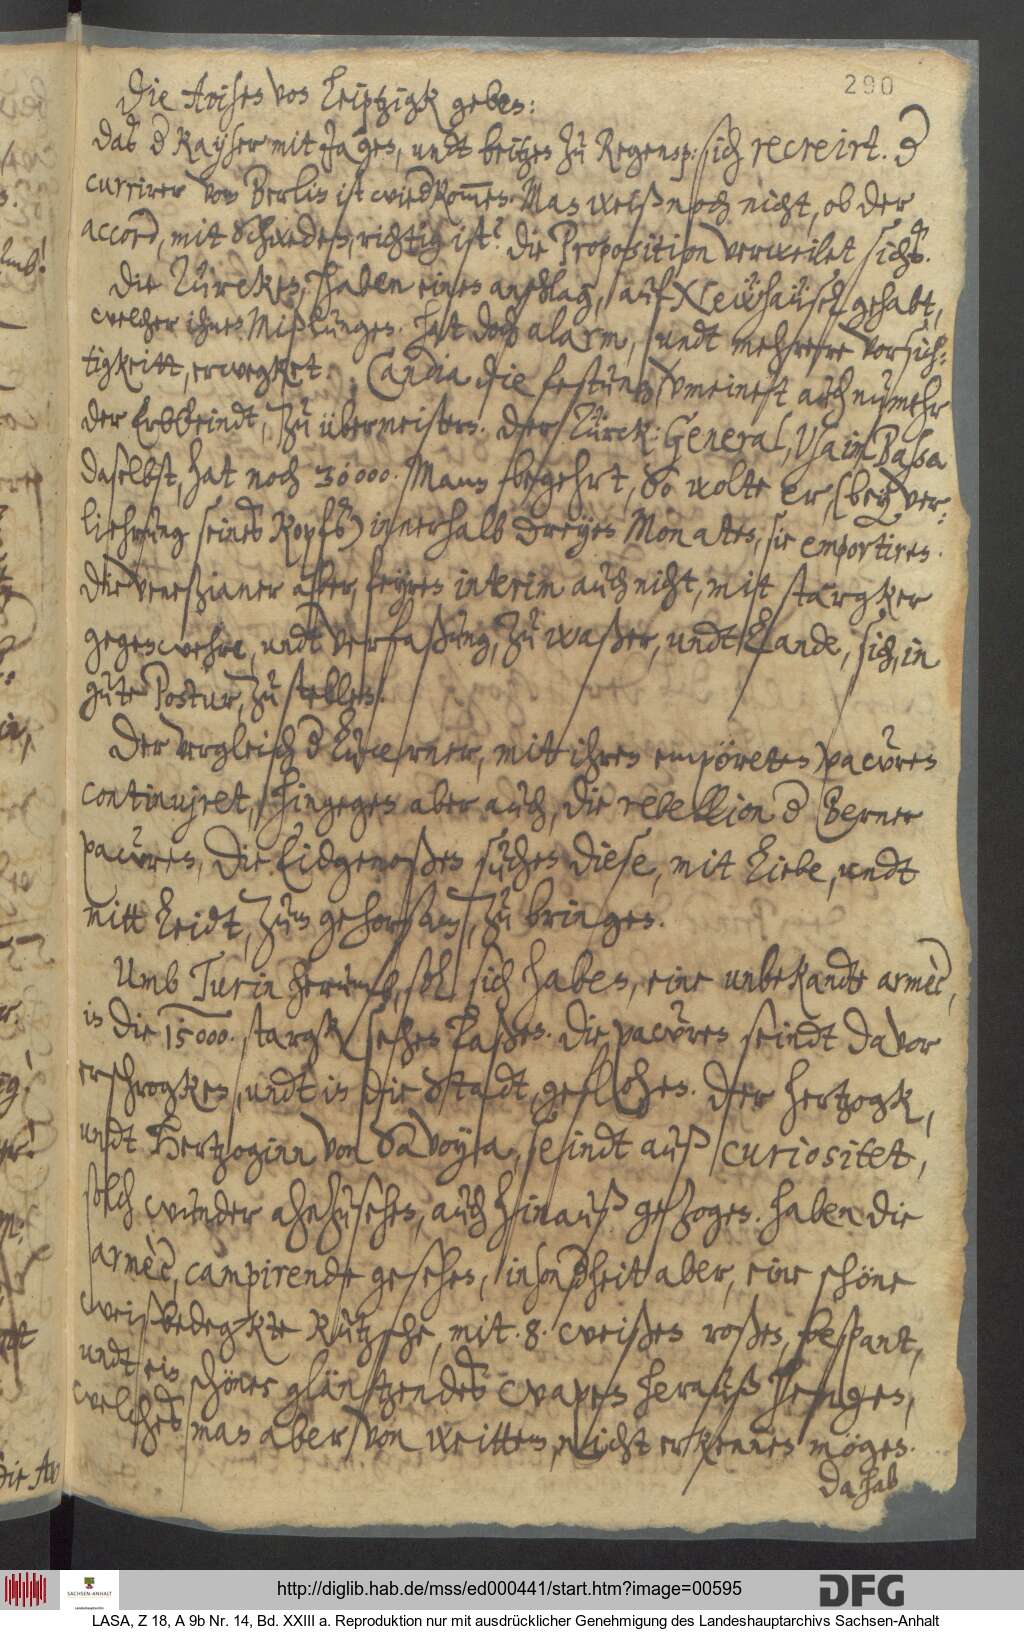 290
Die Avisen von Leiptzigk geben:
das d Kayser mit Jagen, undt beitzen zu Regensp: sich recreirt. d
currirer von Berlin ist wiedkom̅en. Man weiß noch nicht, ob der
accord, mit Schweden, richtig ist? die Proposition verweilet sichs.
Die Türcken, haben einen anschlag, auf Newhäusel gehabt,
welcher ihnen Mißlungen. Hat doch alarm, undt mehrere vorsich-
tigkeitt, erwegket. Candia die festung vmeinet auch nu mehr
der Erbfeindt, zu übermeistern. der Türck: General, Usaim Bassa
daselbst, hat noch 30000. Mann begehrt, So wolte er, (bey ver-
liehrung seines Kopfs) innerhalb dreyen Monaten, sie emportiren.
Die Venezianer aber, feyren interim auch nicht, mit stargker
gegenwehre, undt verfaßung, zu waßer, undt Lande, sich, in
gute Postur, zu stellen.
Der vergleich d Lucerner, mitt ihren empöreten pawren
continuiret, hingegen aber auch, die rebellion d Berner
pawren, Die Eidgenoßen suchen diese, mit Liebe, undt
mitt Leidt, zum gehorsam, zu bringen.
Umb Turin herumb, sol sich haben, eine unbekandte armèe,
in die 15000. stargk sehen laßen. die pawren seindt davor
erschrogken, undt in die Stadt, geflohen. der Hertzogk,
undt Hertzoginn von Savoya, seindt auß curiositet,
solch wunder anzusehen, auch hinauß gezogen. haben die
armèe, campirende gesehen, insondheit aber, eine schöne
weißbedegkte Kutzsche, mit .8. weißen roßen, bespant,
undt ein schönes gläntzendes wapen herauß hengen,
welches man aber von weittem, nicht erkennen mögen.
Da hab
die Av
http://diglib.hab.de/mss/ed000441/start.htm?image=00595
SACHSEN-ANHALT
DFG
LASA, Z 18, A 9b Nr. 14, Bd. XXIII a. Reproduktion nur mit ausdrücklicher Genehmigung des Landeshauptarchivs Sachsen-Anhalt